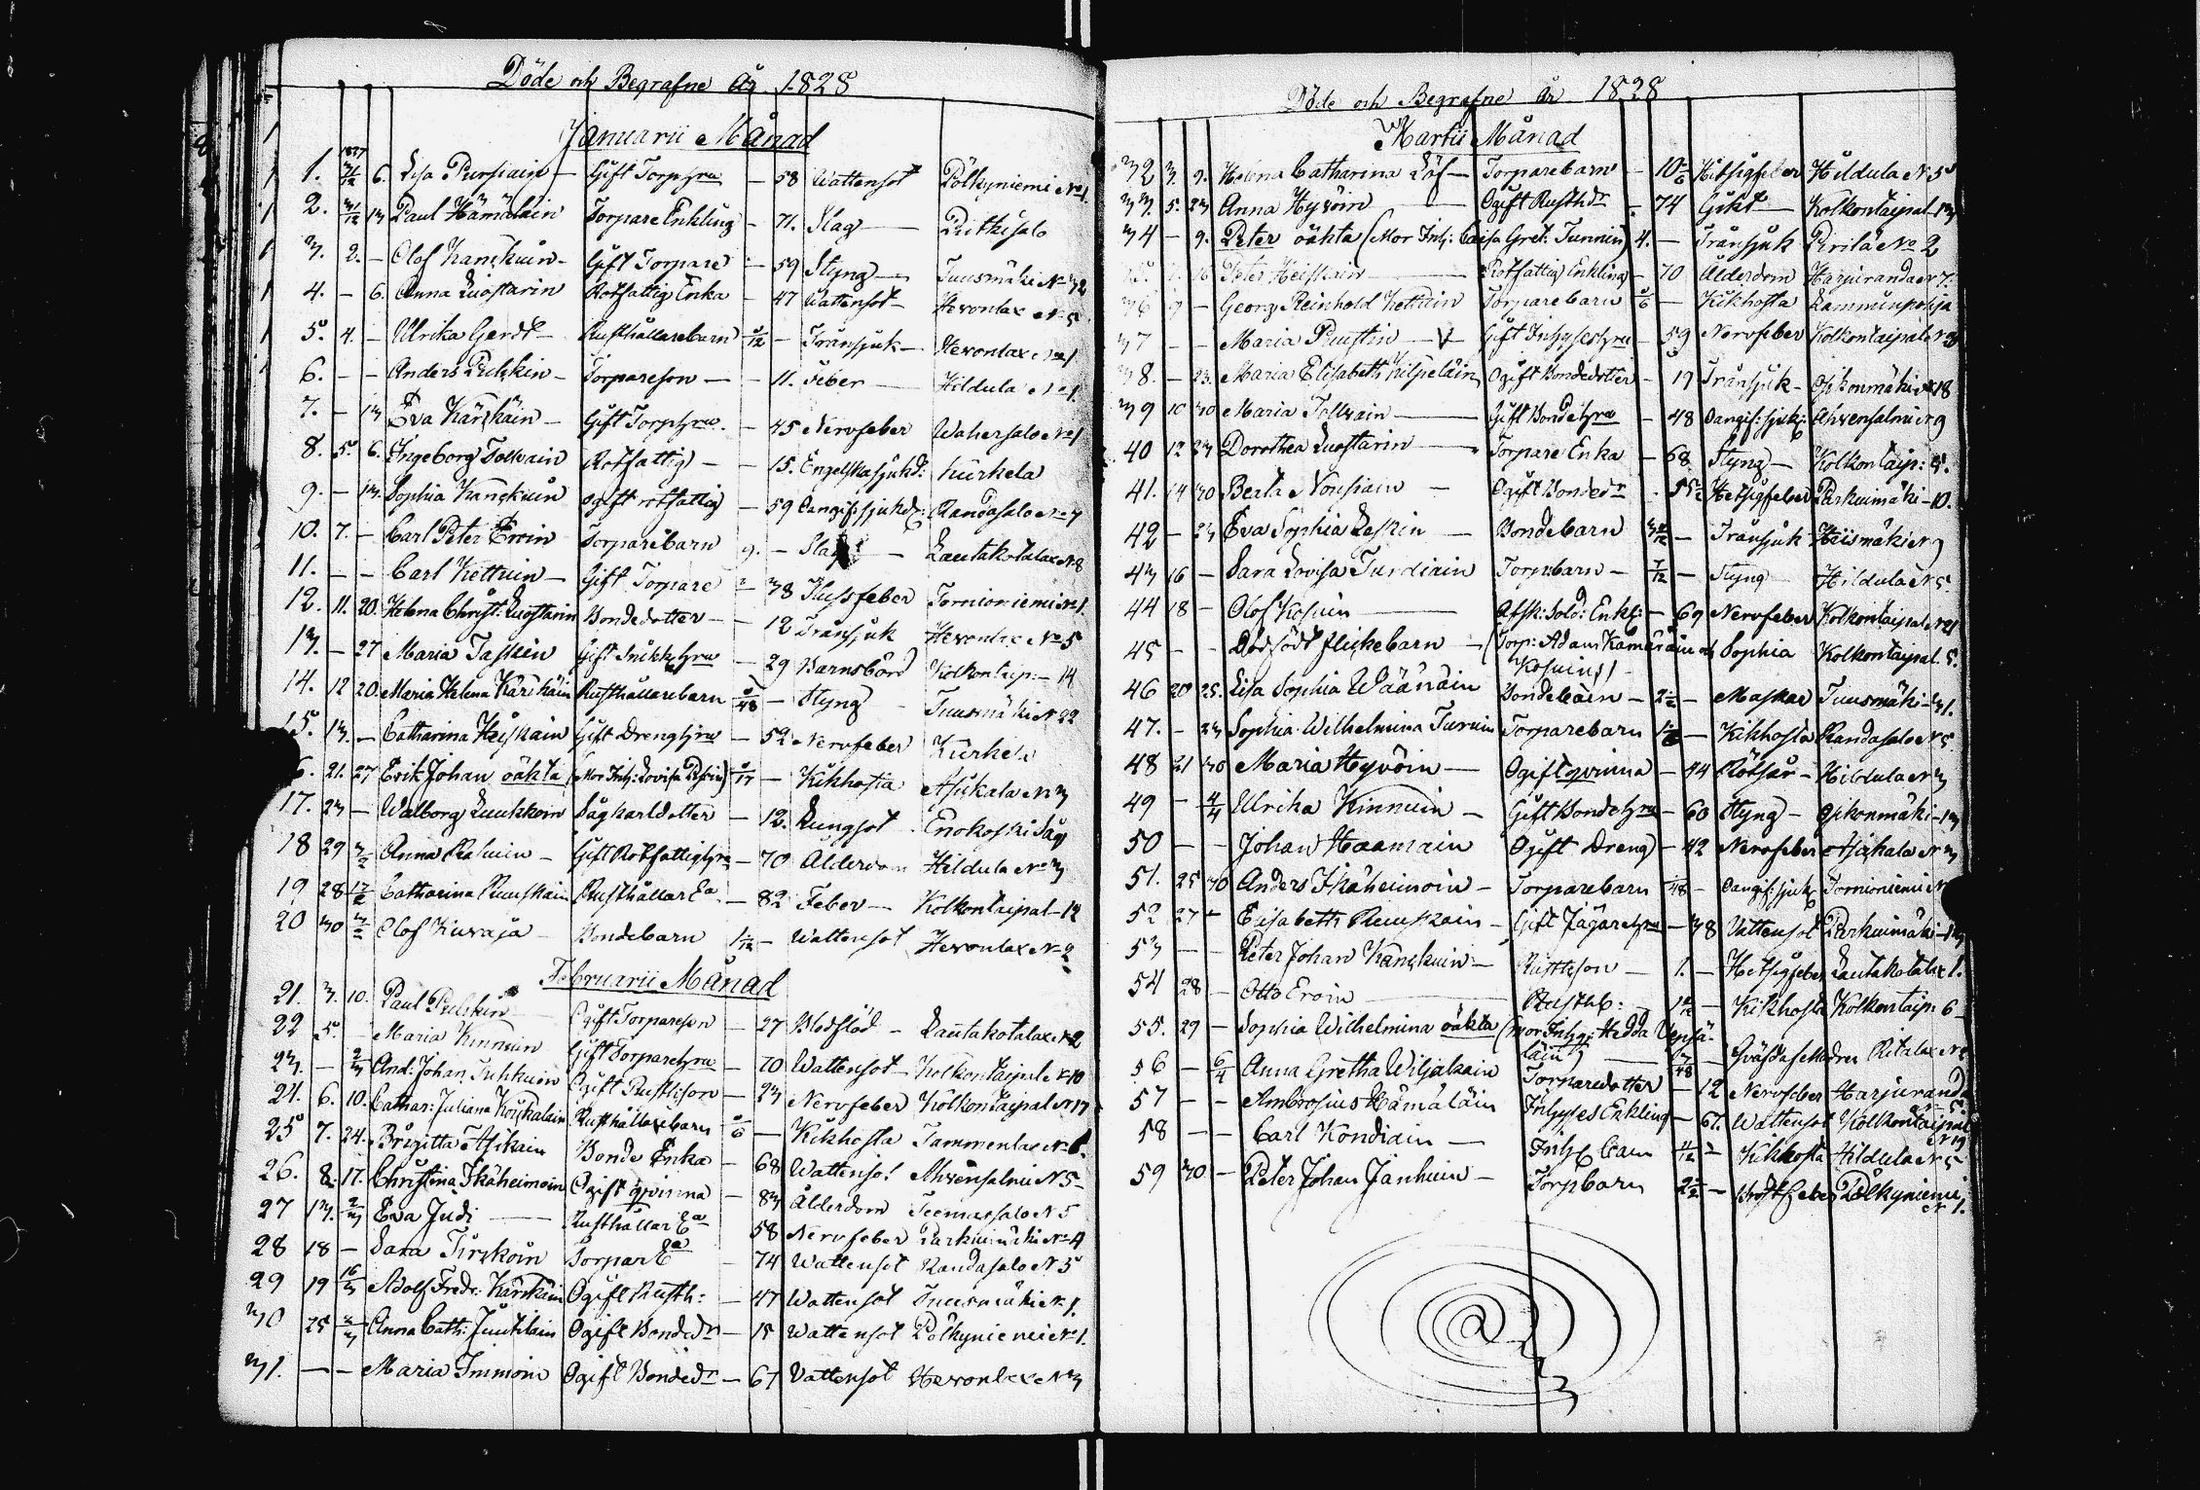 Döde och Begrafne År 1828
Januarii Månad
1. 1827 31/12 6. Lisa Pursiain – Gift Torphru – 58 Wattensot Pölkyniemi No 1
2. 31/12 13 Paul Hämäläin Torpare Enkling – 71. Slag – Pitkesalo
3. 2. – Olof Kanskuin – Gift Torpare – 59 Styng – Tuusmäki No 32
4. – 6. Anna Luostarin Rotfattig Enka – 47 Wattensot – Hevonlax No 5
5. 4. – Ulrika Gerdt – Rusthållarebarn /12 – Trånsjuk – Hevonlax No 1
6. – – Anders Pulskin – Torpareson – – 11. Feber – Hildula No 1
7. – 13 Eva Kärkkäin – Gift Torphru – 45 Nervfeber Wahersalo No 1
8. 5. 6. Ingeborg Tolvain Rotfattig – – 15. Engelskasjukd: Kurkela
9. – 13. Sophia Kanskuin ogift rotfattig – 59 Oangif: sjukd: Randasalo No 7
10. 7. – Carl Peter Eroin Torparebarn 9. – Slag – Lautakotalax No 8
11. – – Carl Kettuin – Gift Torpare – 38 Flussfeber Tornioniemi No 1.
12. 11. 20. Helena Christ: Luostarin Bondedotter – – 12 Trånsjuk Hevonlax No 5
13. – 27 Maria Taskin Gift Snikkhru – 29 Barnsbörd Kolkontaip: – 14
14. 12 20. Maria Helena Kärkkäin Rusthållarebarn /48 – Styng – Tuusmäki No 22
15. 13. – Catharina Heiskain Gift Drenghru – 52 Nervfeber Kurkela
6. 21. 27 Erik Johan oäkta (Mor Inh: Lovisa ) – Kikhosta Asikala No 3
17. 23 – Walborg Luukkoin Sågkarldotter – 12. Lungsot Enokoski Såg
18 29 3/2 Anna Rahuin – Gift Rotfattighru – 70 Ålderdom Hildula No 3
19 28 17/2 Catharina Ruuskain Rusthållar Ea – 82 Feber – Kolkontaipal – 12
20 30 3/2 Olof Kuvaja – Bondebarn 1/12 – Wattensot Hevonlax No 2
Februarii Månad
21. 3. 10. Paul Pulskin Ogift Torpareson – 27 Blodstöd – Lautakotalax No 2
22 5. – Maria Kinnuin Gift Torparehru – 70 Wattensot – Kolkontaipale No 10
23. – 2/3 And: Johan Tuhkuin Ogift Rusthson – 23 Nervfeber Kolkontaipal No 17
24. 6. 10. Cathar: Juliana Koskalain Rusthållarebarn /6 – Kikhosta Tammenlax No 6.
25 7. 24. Brigitta Asikain Bonde Enka – 68 Wattensot Ahvensalmi No 5
26. 8. 17. Christina Ikäheimoin Ogift qvinna – 83 Ålderdom Teemassalo No 5
27 13. 2/3 Eva Judi – Rusthållar Ea 58 Nervfeber Parkuimäki No 4
28 18 – Sara Tirskoin Torpar Ea – 74 Wattensot Randasalo No 5
29 19 16/3 Adolf Fredr: Kärkkäin Ogift Rusth: – 47 Wattensot Tuusmäki No 1.
30 25 2/3 Anna Cath: Juutilain Ogift Bondedr – 15 Wattensot Pölkyniemi No 1.
31. – – Maria Immoin Ogift Bondedr – 67 Vattensot Hevonlax No 3
Döde och Begrafne År 1828
Martii Månad
32 3. 9. Helena Catharina Löf – Torparebarn – 10/6 Hetsigfeber Hildula No 5
33. 5. 23 Anna Hyvöin – Ogift Rusthdr – 74 Gikt – Kolkontaipal – 13
34 – 9. Peter oäkta (Mor Inh: Caisa Gret: Tunnin) 4. – Trånsjuk Pirilä No 2
Peter Heiskain – Rotfattig Enkling – 70 Ålderdom Harjuranda No 7.
36 9 – Georg Reinhold Kettuin Torparebarn /6 – Kikhosta Lamminpohja
37 – – Maria Puustin – Gift Inhyseshru – 59 Nervfeber Kolkontaipal No 3
38. – 23. Maria Elisabeth Kilpeläin Ogift Bondedotter – 19 Trånsjuk – Oskonmäki No 18
39 10 30 Maria Tolvain – Gift Bondehru – 48 Oangif: sjukd: Ahvensalmi No 9
40 12 23 Dorothea Luostarin – Torpare Enka – 68 Styng – Kolkontaip: 5.
41. 14 30 Beata Nousiain – Ogift Bondedr – 55 Hetsigfeber Parkuimäki – 10.
42 – 23 Eva Sophia Laskin – Bondebarn – Trånsjuk Hiismäki No
43 16 – Sara Lovisa Turdiain Torpbarn – 7/12 – Styng Hildula No 5.
44 18 – Olof Kosuin – Afsk: Sold: Enkl: – 69 Nervfeber Kolkontaipal No 21
45 – – Dödfödt flickebarn – (Torp: Adam Kämäräin och Sophia Kolkontaipal. 5.
Kosuins)
46 20 25. Lisa Sophia Wäänäin Bondebarn – 2 – Maskar Tuusmäki – 31.
47. – 23 Sophia Wilhelmina Turuin Torparebarn – Kikhosta Randasalo No 5
48 21 30 Maria Hyvöin – Ogift qvinna – 44 Rötsår – Hildula No 3
49 – 4/4 Ulrika Kinnuin – Gift Bondehru – 60 Styng – Oskonmäki – 13
50 – – Johan Haamain Ogift Dreng – 42 Nervfeber Asikala No 3
51. 25 30 Anders Ikäheimoin – Torparebarn /48 – Oangif: sjukd Tornioniemi No
52 27 – Elisabeth Ruuskain – Gift Jägarehru – 38 Vattensot Parkuimäki – 13
53 – – Peter Johan Kanskuin – Rusthson – 1. – Hetsigfeber Lautakotalax 1.
54 28 – Otto Eroin – Rusthb: 1/12 – Kikhosta Kolkontaip: 6
55. 29 – Sophia Wilhelmina oäkta (mor Inhys: Hedda Vepsä-
läin) – /48 – Qväfd af Modren Ritalax No
56 – 6/4 Anna Gretha Wiljakain Torparedotter – 12 Nervfeber Harjuranda
57 – – Ambrosius Hämäläin Inhyses Enkling – 67. Wattensot Kolkontaipal
No 19
58 – – Carl Kondiain – Inhys barn 11/12 – Kikhosta Hildula No 5
59 30 – Peter Johan Janhuin – Torpbarn 2 – Bröstfeber Pölkyniemi
No 1.